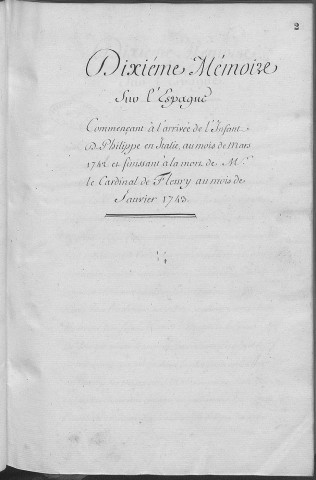 2
Dixiéme Mémoire
Sur l'Espagne
Commençant à l'arrivée de l'Infant
D. Philippe en Italie, au mois de Mars
1742 et finissant à la mort de M.r
le Cardinal de Fleury au mois de
Janvier 1743.